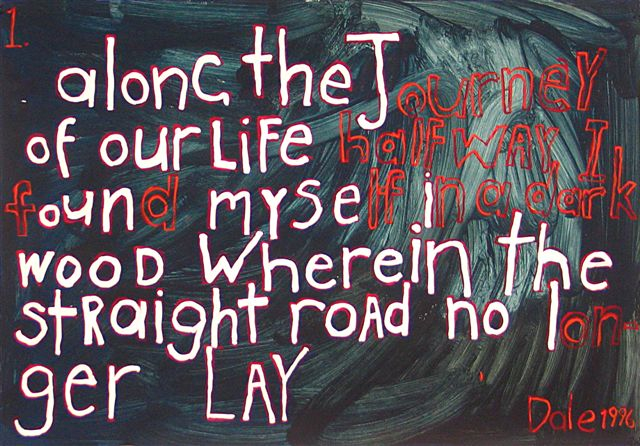 1.
along the Journey
of our LiFe halfWAY, I
found myself in a dark
wood wherein the
stRaight roAd no lon-
ger LAY
Dale 1996